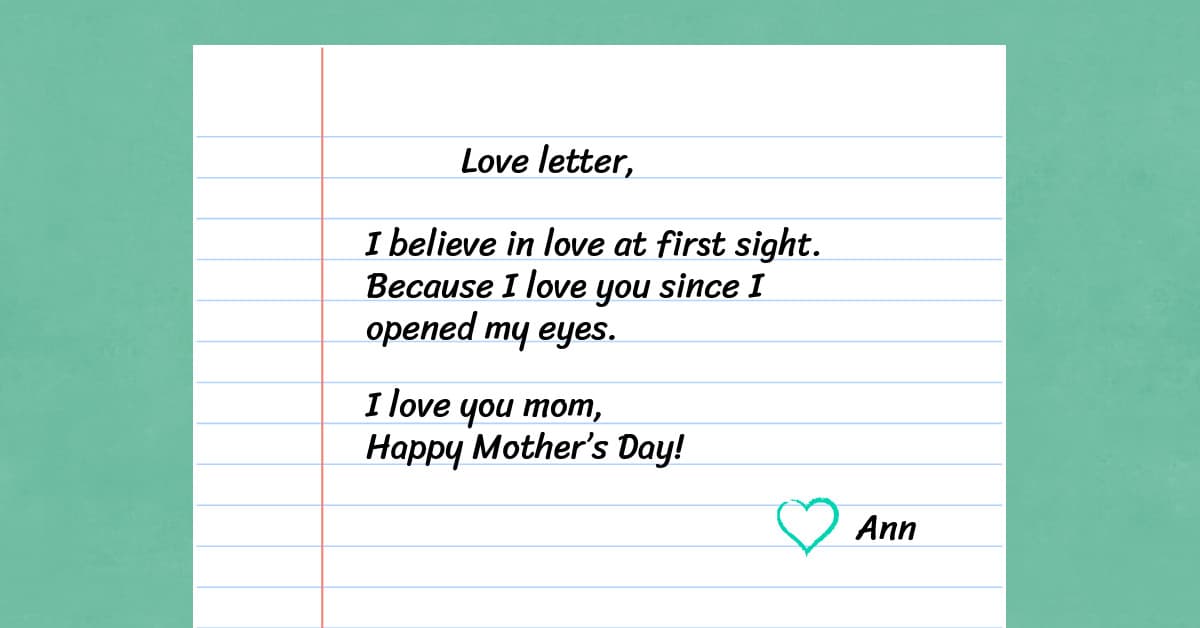 Love letter,
I believe in love at first sight.
Because I love you since I
opened my eyes.
I love you mom,
Happy Mother's Day!
Ann